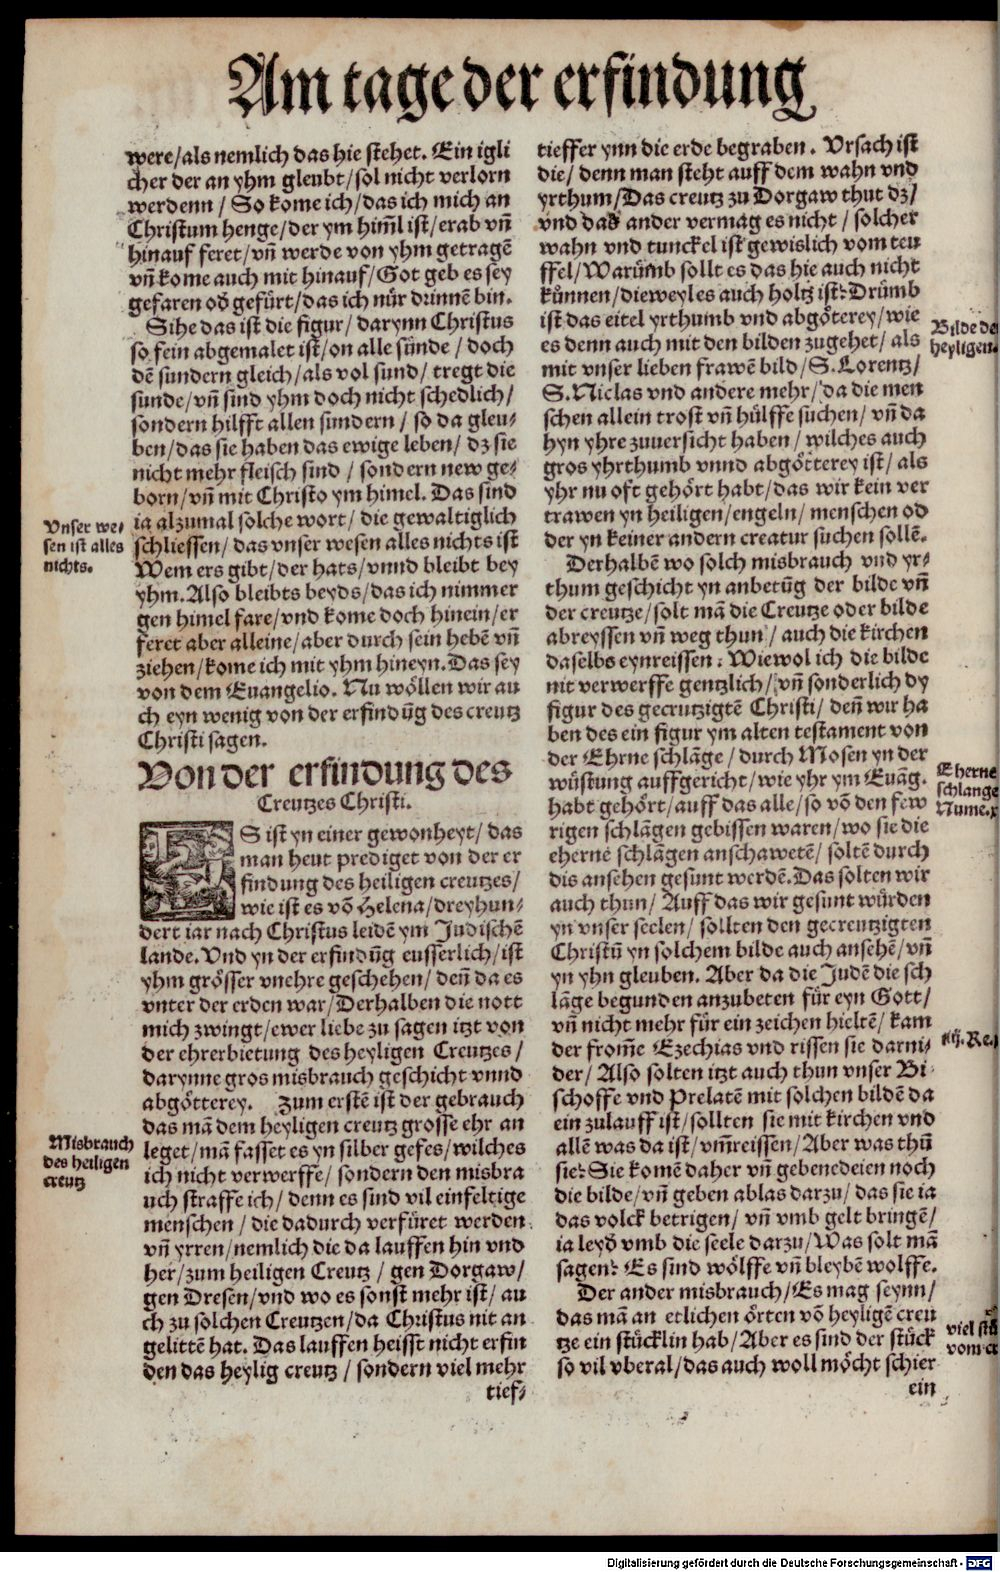 Am tage der erfindung
were/als nemlich das hie stehet. Ein igli
cher der an yhm gleubt/sol nicht verlorn
werdenn / So kome ich/das ich mich an
Christum henge/der ym him̃l ist/erab vñ
hinauf feret/vñ werde von yhm getragẽ
vñ kome auch mit hinauf/Got geb es sey
gefaren od gefürt/das ich nür drinnẽ bin.
Sihe das ist die figur/ darynn Christus
so fein abgemalet ist/on alle sünde / doch
dẽ sundern gleich/als vol sund/ tregt die
sunde/vñ sind yhm doch nicht schedlich/
sondern hilfft allen sundern / so da gleu⸗
ben/das sie haben das ewige leben/ dz sie
nicht mehr fleisch sind / sondern new ge⸗
born/vñ mit Christo ym himel. Das sind
ia alzumal solche wort/ die gewaltiglich
schliessen/ das vnser wesen alles nichts ist
Wem ers gibt/der hats/vnnd bleibt bey
yhm. Also bleibts beyds/das ich nimmer
gen himel fare/vnd kome doch hinein/er
feret aber alleine/aber durch sein hebẽ vñ
ziehen/kome ich mit yhm hineyn. Das sey
von dem Euangelio. Nu wöllen wir au
ch eyn wenig von der erfindũg des creutz
Christi sagen.
Vnser we⸗
sen ist alles
nichts.
Von der erfindung des
Creutzes Christi.
ES ist yn einer gewonheyt/ das
man heut prediget von der er
findung des heiligen creutzes/
wie ist es võ Helena/dreyhun⸗
dert iar nach Christus leidẽ ym Judischẽ
lande. Vnd yn der erfindũg eusserlich/ist
yhm grösser vnehre geschehen/ deñ da es
vnter der erden war/Derhalben die nott
mich zwingt/ewer liebe zu sagen itzt von
der ehrerbietung des heyligen Creutzes/
darynne gros misbrauch geschicht vnnd
abgötterey. Zum erstẽ ist der gebrauch
das mã dem heyligen creutz grosse ehr an
leget/mã fasset es yn silber gefes/wilches
ich nicht verwerffe/ sondern den misbra
uch straffe ich/ denn es sind vil einfeltige
menschen / die dadurch verfüret werden
vñ yrren/nemlich die da lauffen hin vnd
her/zum heiligen Creutz / gen Dorgaw/
gen Dresen/vnd wo es sonst mehr ist/ au
ch zu solchen Creutzen/da Christus nit an
gelittẽ hat. Das lauffen heisst nicht erfin
den das heylig creutz / sondern viel mehr
tief⸗
Misbrauch
des heiligen
creutz
tieffer ynn die erde begraben. Vrsach ist
die/ denn man steht auff dem wahn vnd
yrthum/Das creutz zu Dorgaw thut dz/
vnd das ander vermag es nicht / solcher
wahn vnd tunckel ist gewislich vom teu
ffel/Warũmb sollt es das hie auch nicht
kůnnen/dieweyl es auch holtz ist? Drümb
ist das eitel yrthumb vnd abgöterey/wie
es denn auch mit den bilden zugehet/ als
mit vnser lieben frawẽ bild/S. Lorentz/
S. Niclas vnd andere mehr/ da die men
schen allein trost vñ hülffe suchen/ vñ da
hyn yhre zuuersicht haben/ wilches auch
gros yhrthumb vnnd abgötterey ist/ als
yhr nu oft gehört habt/das wir kein ver
trawen yn heiligen/engeln/ menschen od
der yn keiner andern creatur suchen sollẽ.
Derhalbẽ wo solch misbrauch vnd yr⸗
thum geschicht yn anbetũg der bilde vñ
der creutze/solt mã die Creutze oder bilde
abreyssen vñ weg thun / auch die kirchen
daselbs eynreissen. Wiewol ich die bilde
nit verwerffe gentzlich/ vñ sonderlich dy
figur des gecrutzigtẽ Christi/ deñ wir ha
ben des ein figur ym alten testament von
der Ehrne schlãge/durch Mosen yn der
wüstung auffgericht/wie yhr ym Euãg.
habt gehört/auff das alle/so võ den few
rigen schlãgen gebissen waren/wo sie die
eherne schlãgen anschawetẽ/ soltẽ durch
dis ansehen gesunt werdẽ. Das solten wir
auch thun/ Auff das wir gesunt würden
yn vnser seelen/ sollten den gecreutzigten
Christũ yn solchem bilde auch ansehẽ/vñ
yn yhn gleuben. Aber da die Judẽ die sch
lãge begunden anzubeten für eyn Gott/
vñ nicht mehr für ein zeichen hieltẽ/ kam
der from̃e Ezechias vnd rissen sie darni⸗
der/ Also solten itzt auch thun vnser Bi⸗
schoffe vnd Prelatẽ mit solchen bildẽ da
ein zulauff ist/sollten sie mit kirchen vnd
allẽ was da ist/vm̃reissen/Aber was thũ
sie? Sie komẽ daher vñ gebenedeien noch
die bilde/vñ geben ablas darzu/das sie ia
das volck betrigen/ vñ vmb gelt bringẽ/
ia leyd vmb die seele darzu/Was solt mã
sagen? Es sind wölffe vñ bleybẽ wolffe.
Der ander misbrauch/Es mag seynn/
das mã an etlichen örten võ heyligẽ creu
tze ein stücklin hab/Aber es sind der stück
so vil vberal/das auch woll möcht schier
ein
Bilde de
heyligen.
Eherne
schlange
Nume.x
iiij. Re.
viel stü
vom cr
Digitalisierung gefördert durch die Deutsche Forschungsgemeinschaft - DFG